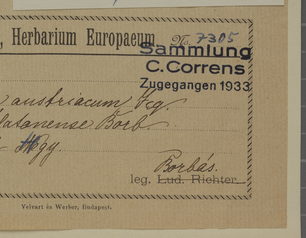 , Herbarium Europaeum No. 7305
Sammlung
C. Correns
Zugegangen 1933
austriacum
latanense Borb.
Borbás.
leg. Lud. Richter.
Velvart és Werber, Budapest.